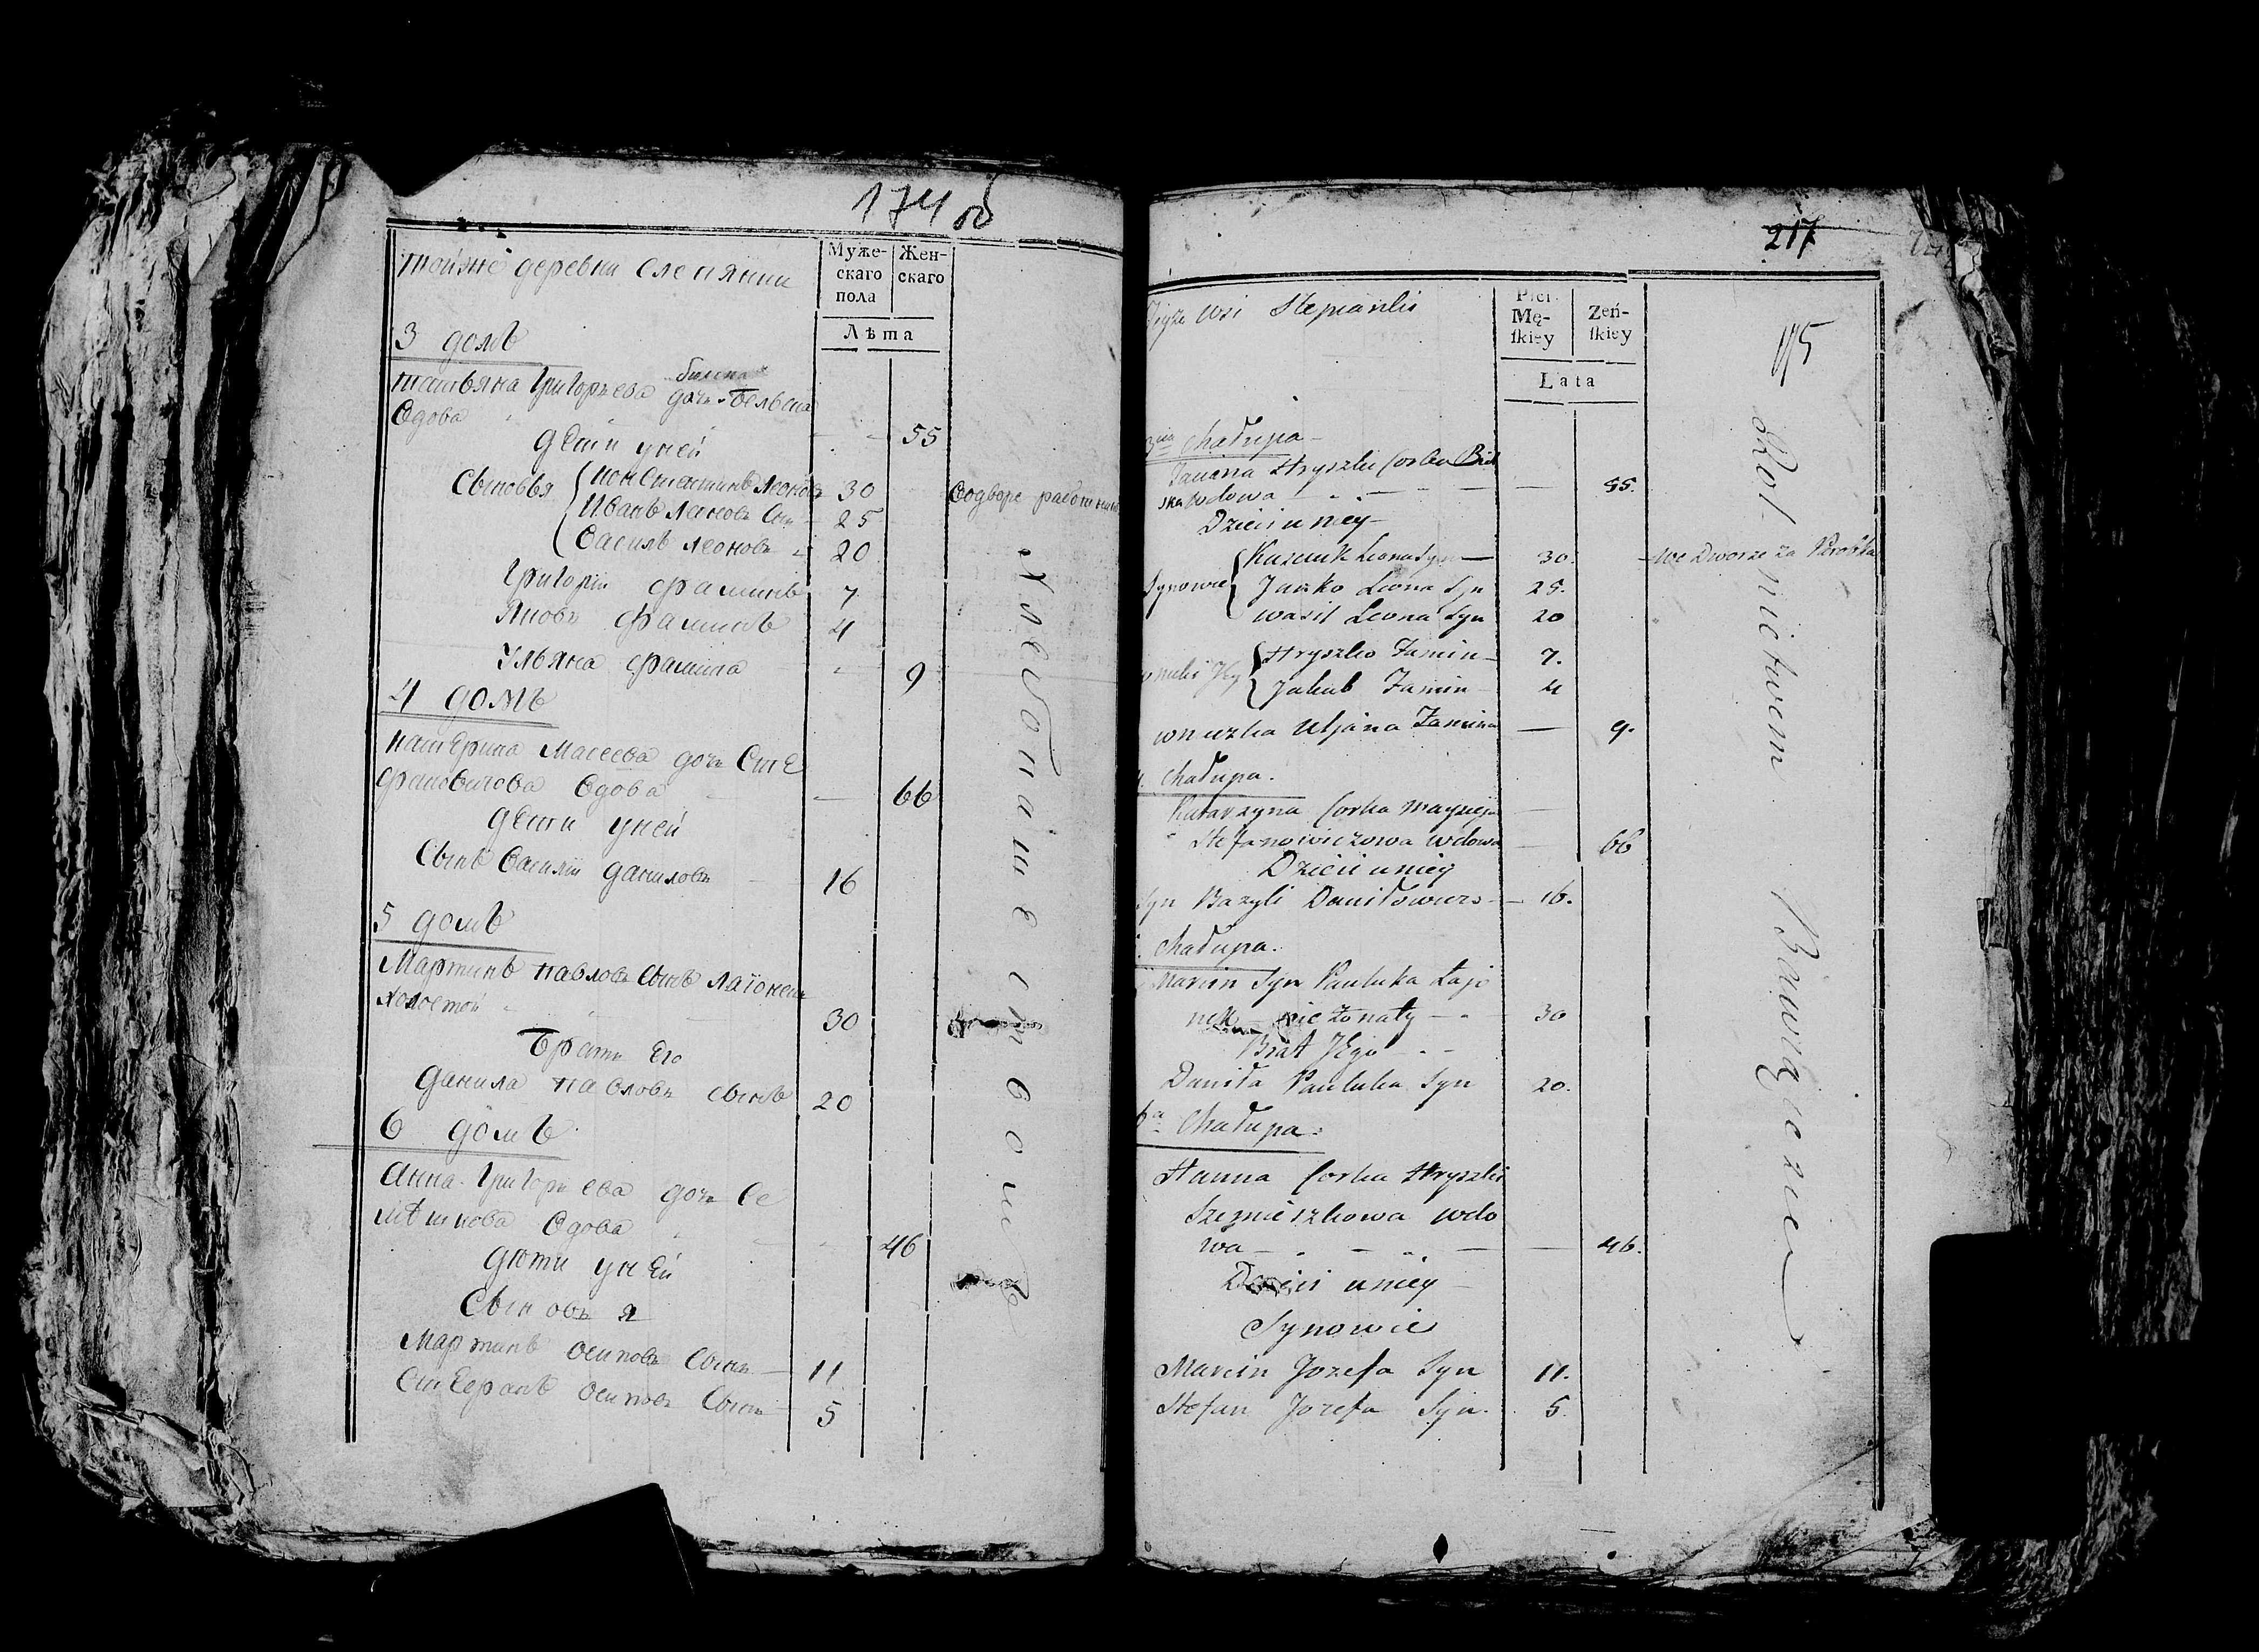 174 об
тойже деревни слепянки
Муже-
скаго
пола
Жен-
скаго
Лѣта
3 домъ
татьяна Григорьева дочь Бельска
вдова 55
дети уней
Сыновья Константинъ Леоновъ 30 водворе работникъ
Иванъ Леоновъ Сынъ 25
Василъ Леоновъ 20
Григорiи фаминъ 7
Яковъ фаминъ 4
Ульяна фамина 9
4 домъ
катерина Масеева дочь Сте
фановичова вдова 66
дети уней
Сынъ Василiи даниловъ 16
5 домъ
Мартинъ павловъ Сынъ
холостой 30
Братъ Его
данила павловъ сынъ 20
6 домъ
Анна Григорьева дочь Се
мѣшкова вдова 46
дюти уней
Сыновья
Мартинъ осиповъ Сынъ 11
Стефанъ осиповъ Сынъ 5
хлебопашествомъ
217
175
Teyże wsi Stepianki
Płci
Mę-
ſkiey
Żeń-
ſkiey
Lata
3cia Chałupa
Hryszki Corka Biel
ska wdowa 55.
Dzieci u niey
Synowie Kaziuk Leona Syn 30. we Dworze za Parobka
Janko Leona Syn 25.
Wasil Leona Syn 20
wnuki Jey Hryszko Famin 7.
Jakub Famin 4
wnuzka Uljana Famina 9.
4. Chałupa.
Katarzyna Corka Mayzieja
Stefanowiczowa wdowa 66
Dzieci u niey
Syn Bazyli Daniłowicz 16.
Chałupa.
Marcin Syn Pauluka Łajo
nek nie żonaty 30
Brat Jego
Daniła Pauluka Syn 20.
6a Chałupa.
Hanna Corka Hryszki
Szemieszkowa wdo
wa 46.
Dzieci u niey
Synowie
Marcin Jozefa Syn 11.
Stefan Jozefa Syn. 5.
Rolnictwem